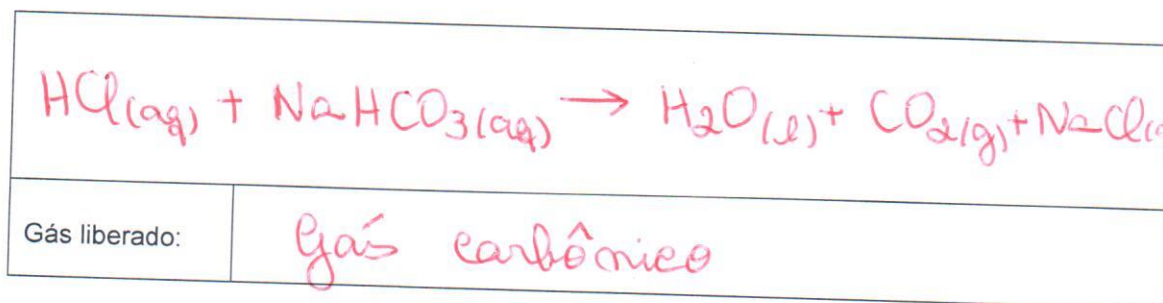 HCl(aq) + NaHCO3(aq) → H2O(l) + CO2(g) + NaCl(a
Gás liberado: Gás carbônico